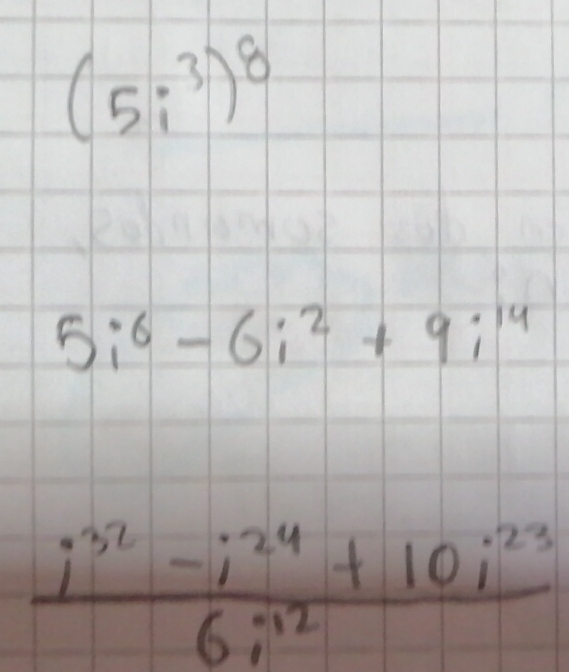 (5i³)⁸
5i⁶ - 6i² + 9i¹⁴
i³² - i²⁴ + 10i²³
6i¹²